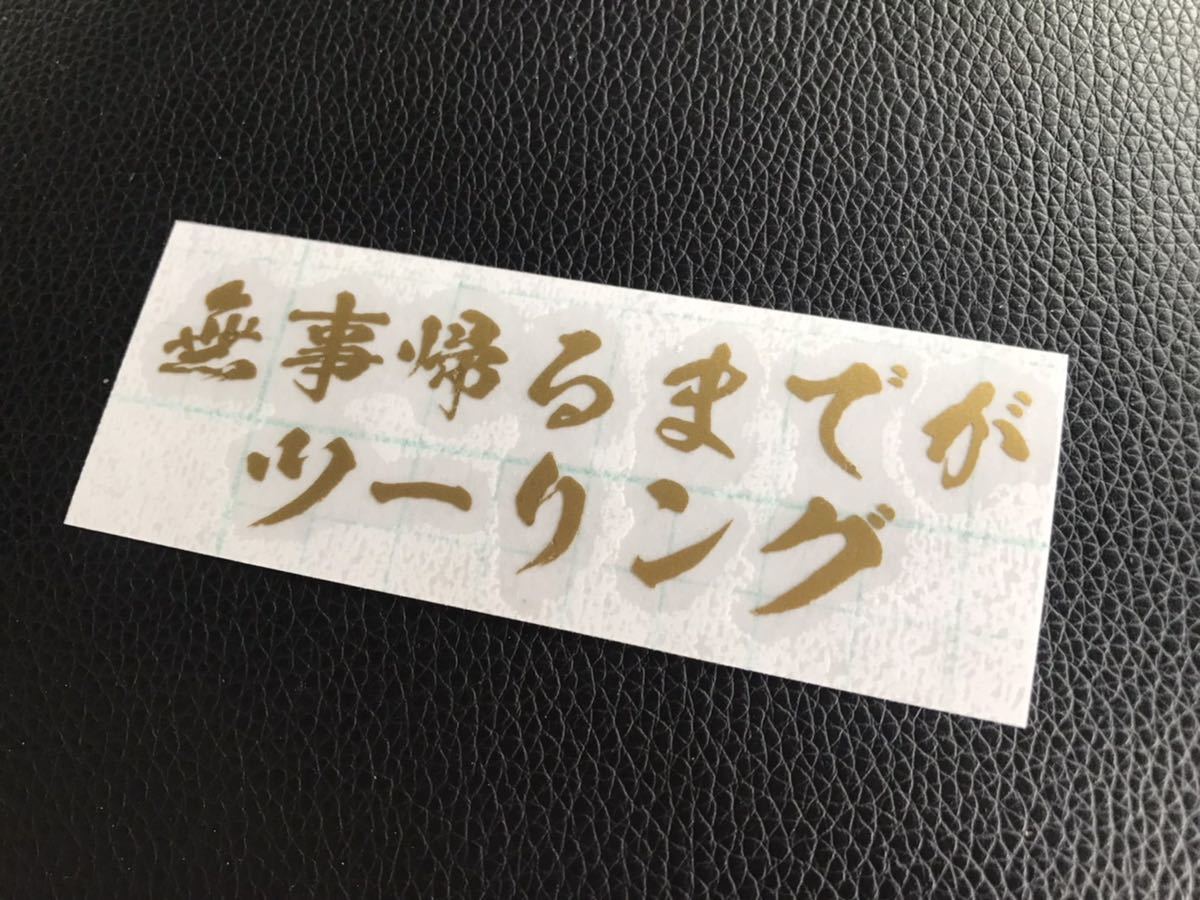 無事帰るまでが
ツーリング